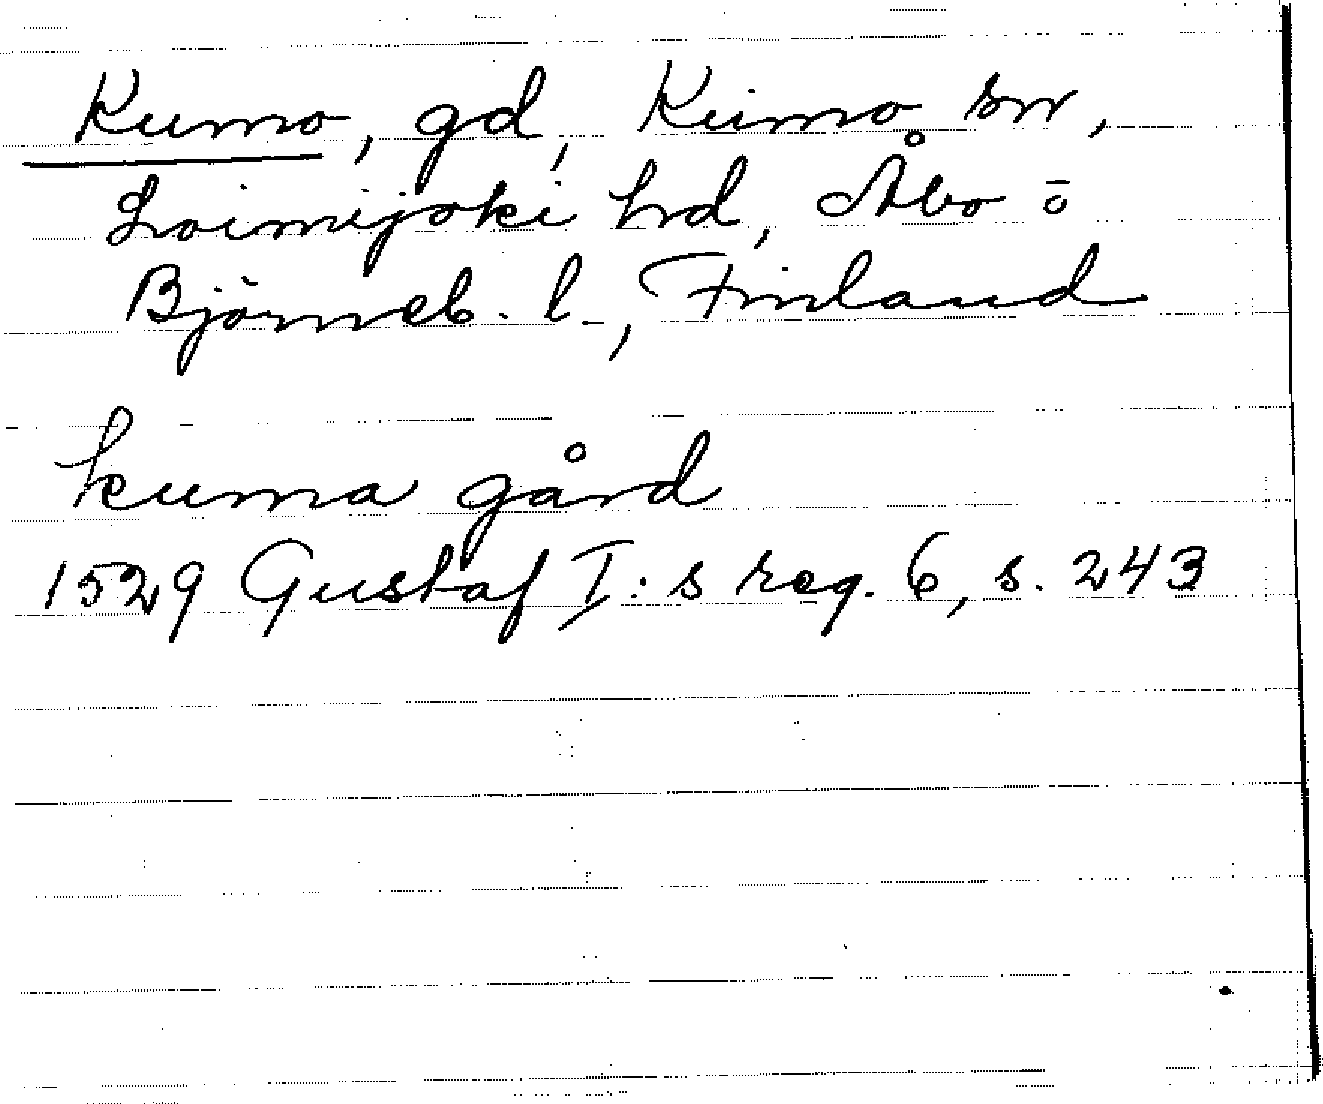 Kumo, gd, Kumo sn,
Loimijoki hd, Åbo o
Björneb. l., Finland
kuma gård
1529 Gustaf I:s reg. 6, s. 243